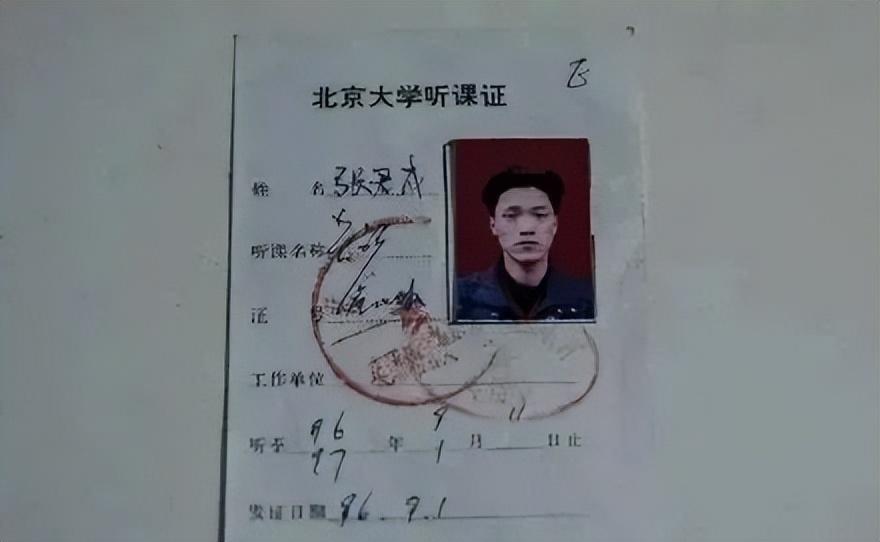 北京大学听课证
姓 名 张君成
听课名称
证 号
工作单位
听至 96 年 9 月 11 日止
97 1
发证日期 96.9.1